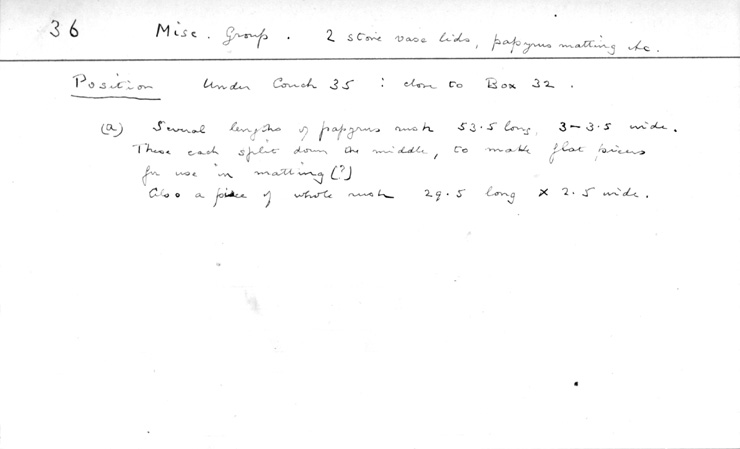 36 Misc. Group. 2 stone vase lids, papyrus matting etc.
Position Under Couch 35 : close to Box 32.
(a) Several lengths of papyrus rush 53.5 long, 3-3.5 wide.
These each split down the middle, to make flat pieces
for use in matting (?)
Also a piece of whole rush 29.5 long x 2.5 wide.